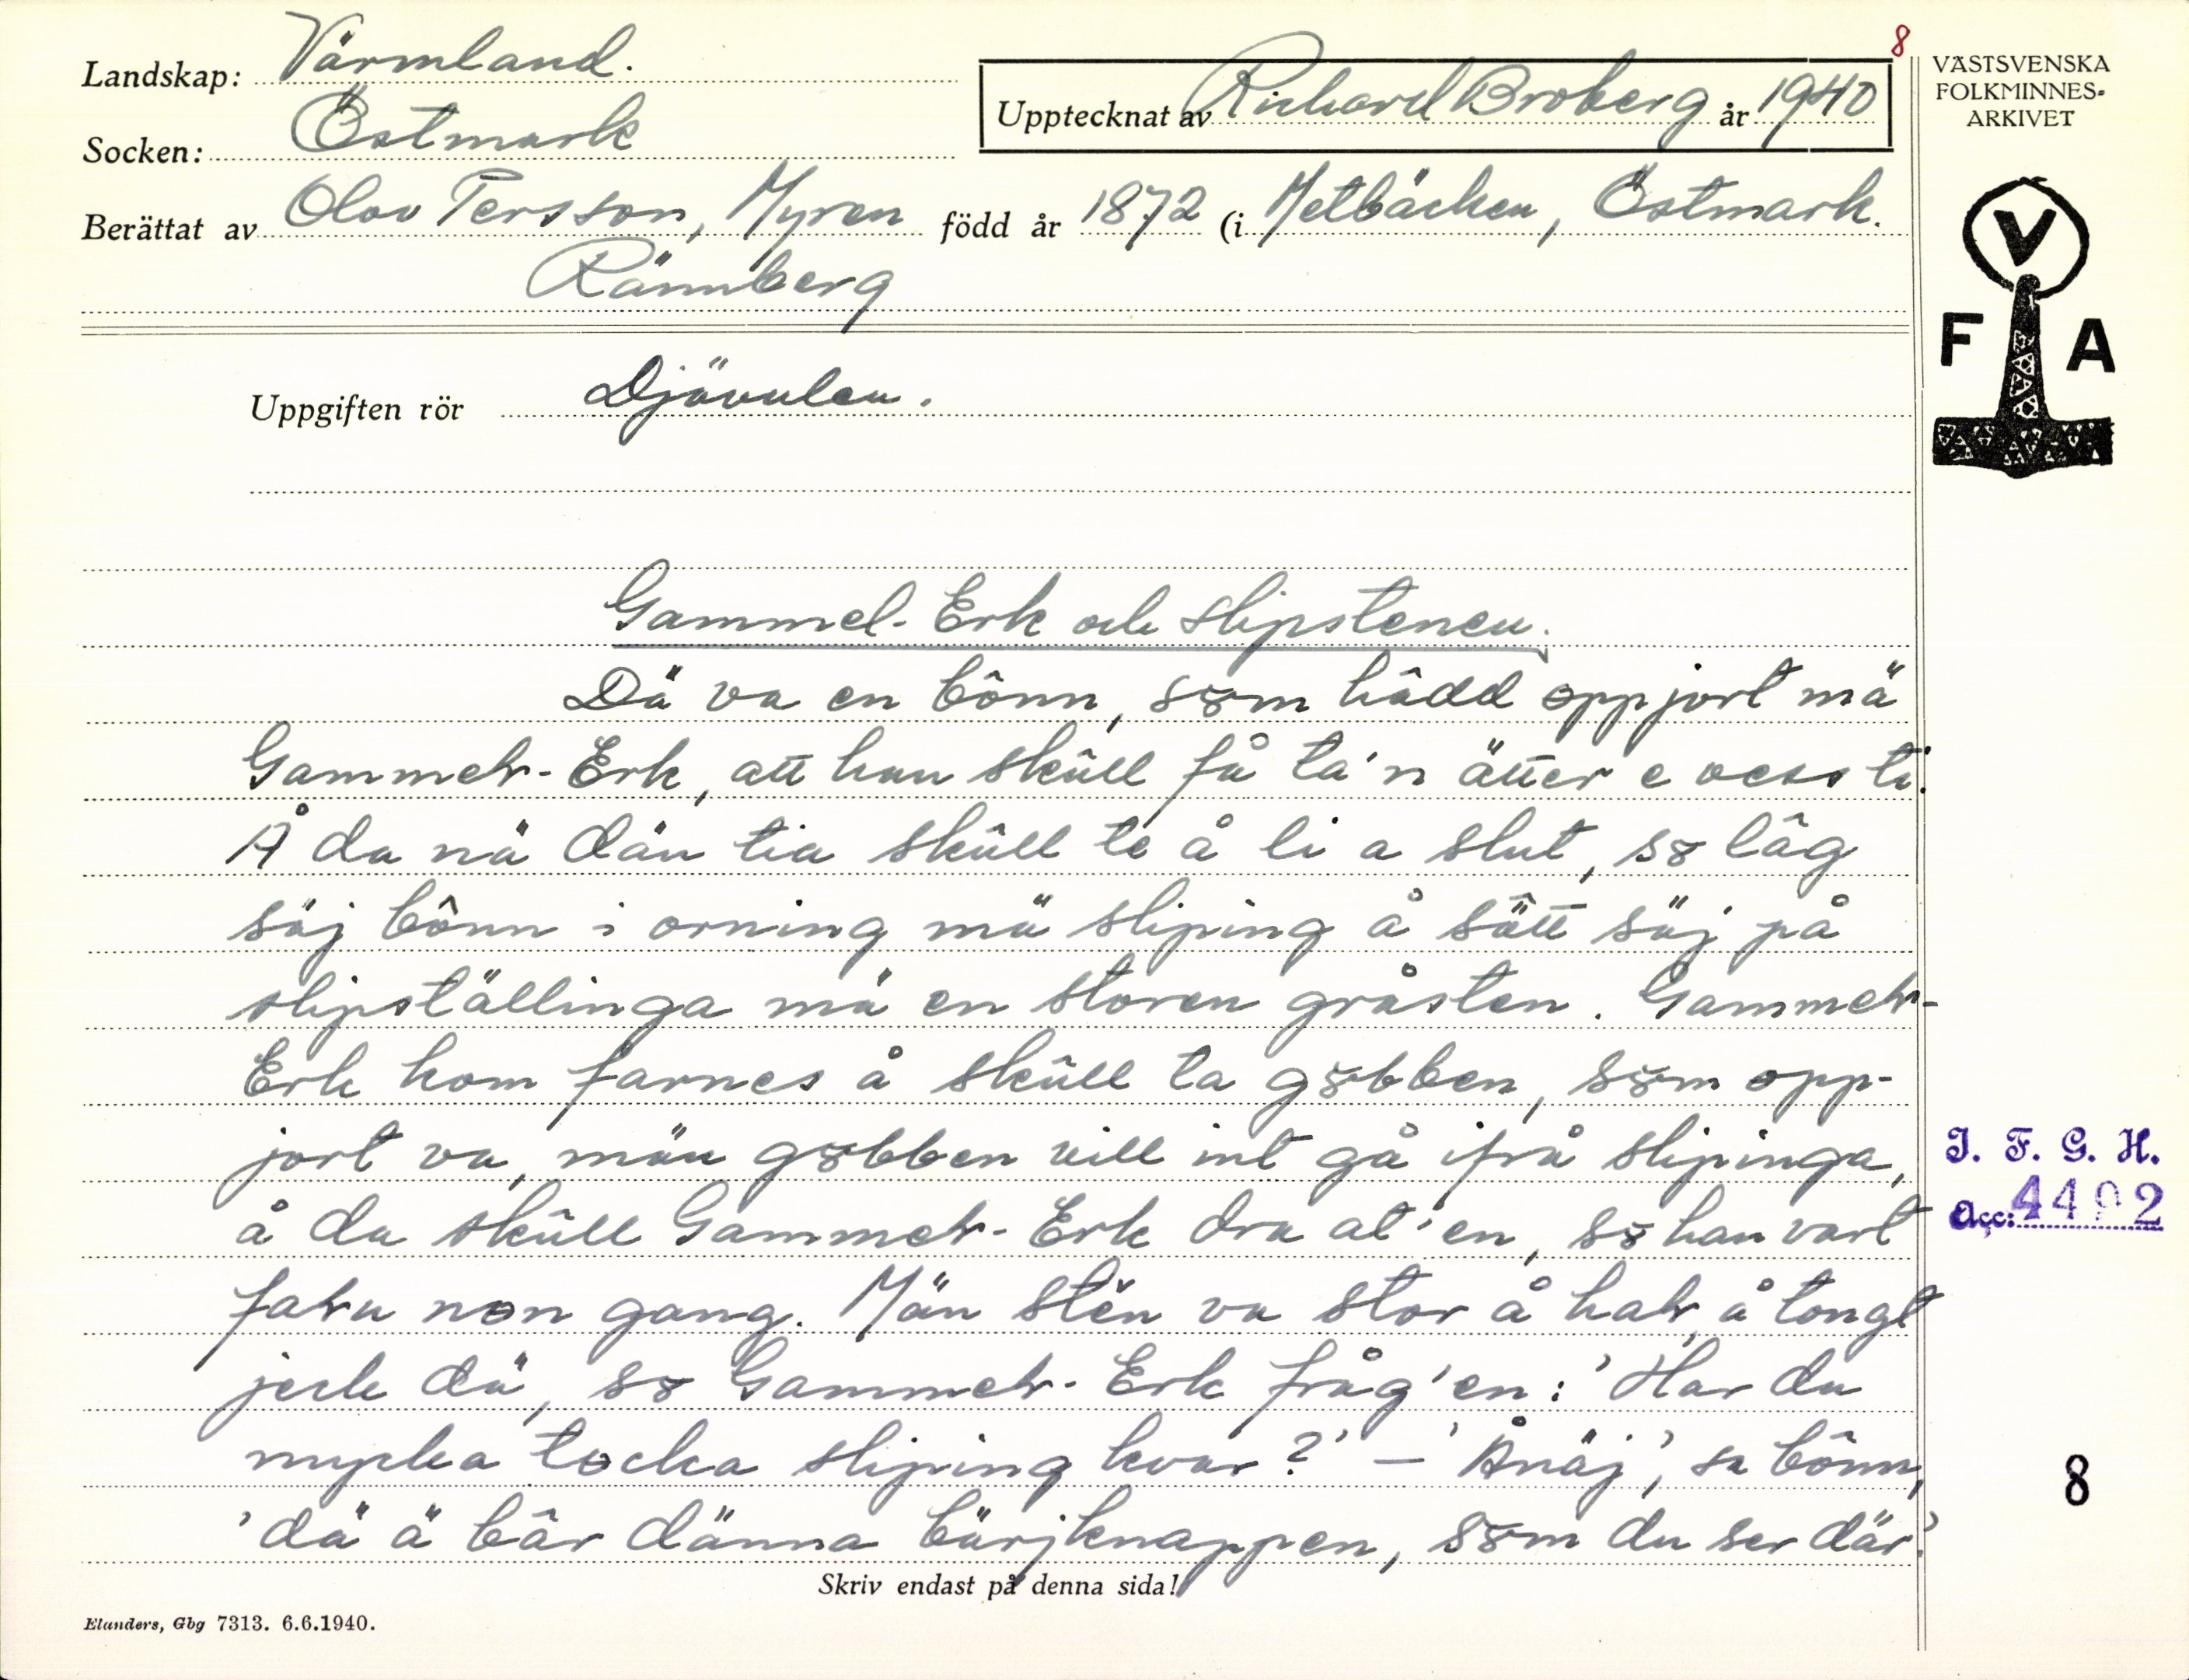 8
Landskap: Värmland.
Upptecknat av Richard Broberg år 1940
VÄSTSVENSKA
FOLKMINNES-
ARKIVET
Socken: Östmark
Berättat av Olov Persson, Myren född år 1872 (i Metbäcken, Östmark.
Rännberg
V
F A
Uppgiften rör Djävulen.
Gammel-Erk och slipstenen.
Dä va en bônn, som hâdd oppjort mä
Gammeḷ-Erk, att han skûll få ta'n ätter e vess ti.
Å da nä dän tia skûll te å li a slut, so lâg
säj bônn i orning mä sliping å sâtt säj på
slipställinga mä en storen gråsten. Gammeḷ-
Erk kom farnes å skûll ta gobben, som opp-
jort va, män gobben vill int gå ifrå slipinga,
å da skûll Gammeḷ-Erk dra at'en, so han vart
faḷu non gang. Män stên va stor å haḷ, å tongt
jeck dä, so Gammeḷ-Erk fråg'en: 'Har du
mycka tocka sliping kvar?' – 'Ånäj', sa bônn,
'dä ä bâr dänna bärjknappen, som du ser där.'
I. F. G. H.
Acc: 4492
8
Skriv endast på denna sida!
Elanders, Gbg 7313. 6.6.1940.